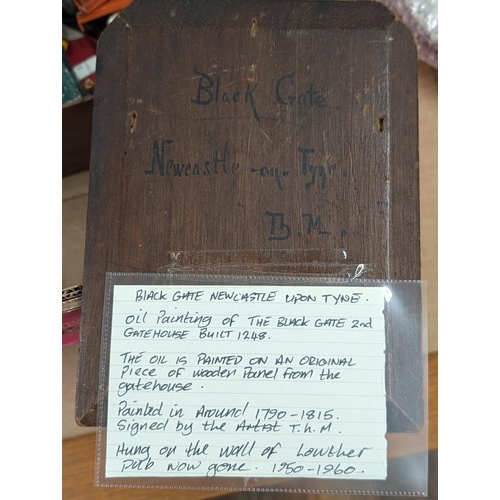 Black Gate.
Newcastle-on-Tyne.
B.M.
BLACK GATE NEWCASTLE UPON TYNE.
Oil Painting of THE BLACK GATE 2nd
GATEHOUSE BUILT 1248.
THE OIL IS PAINTED ON AN ORIGINAL
Piece of wooden Panel from the
gatehouse.
Painted in Around 1790-1815.
Signed by the Artist T.h.M.
Hung on the wall of Lowther
Pub now gone. 1950-1960.